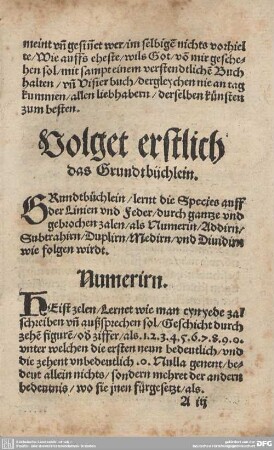 meint vñ gesiñet wer/im selbigẽ nichts vorhiel
te/Wie auffs eheste/wils Got/võ mir gesche-
hen sol/mit sampt einem verstendtlichẽ Buch
halten/vñ Visier buch/dergleychen nie an tag
kummen/allen liebhabern/derselben künsten
zum besten.
Volget erstlich
das Grundtbüchlein.
GRundtbüchlein/lernt die Species auff
der Linien vnd Feder/durch gantze vnd
gebrochen zalen/als Numerirn/Addirn/
Subtrahirn/Duplirn/Medirn/vnd Diuidirn
wie folgen wirdt.
Numerirn.
HEist zelen/Lernet wie man eyn yede zal
schreiben vñ außsprechen sol/Geschicht durch
zehẽ figurẽ/oď ziffer/als.1.2.3.4.5.6.7.8.9.0.
vnter welchen die ersten neun bedeutlich/vnd
die zehent vnbedeutlich.0.Nulla genent/be-
deut allein nichts/sondern mehret der andern
bedeutnis/wo sie jnen fürgesetzt/als.
A iij